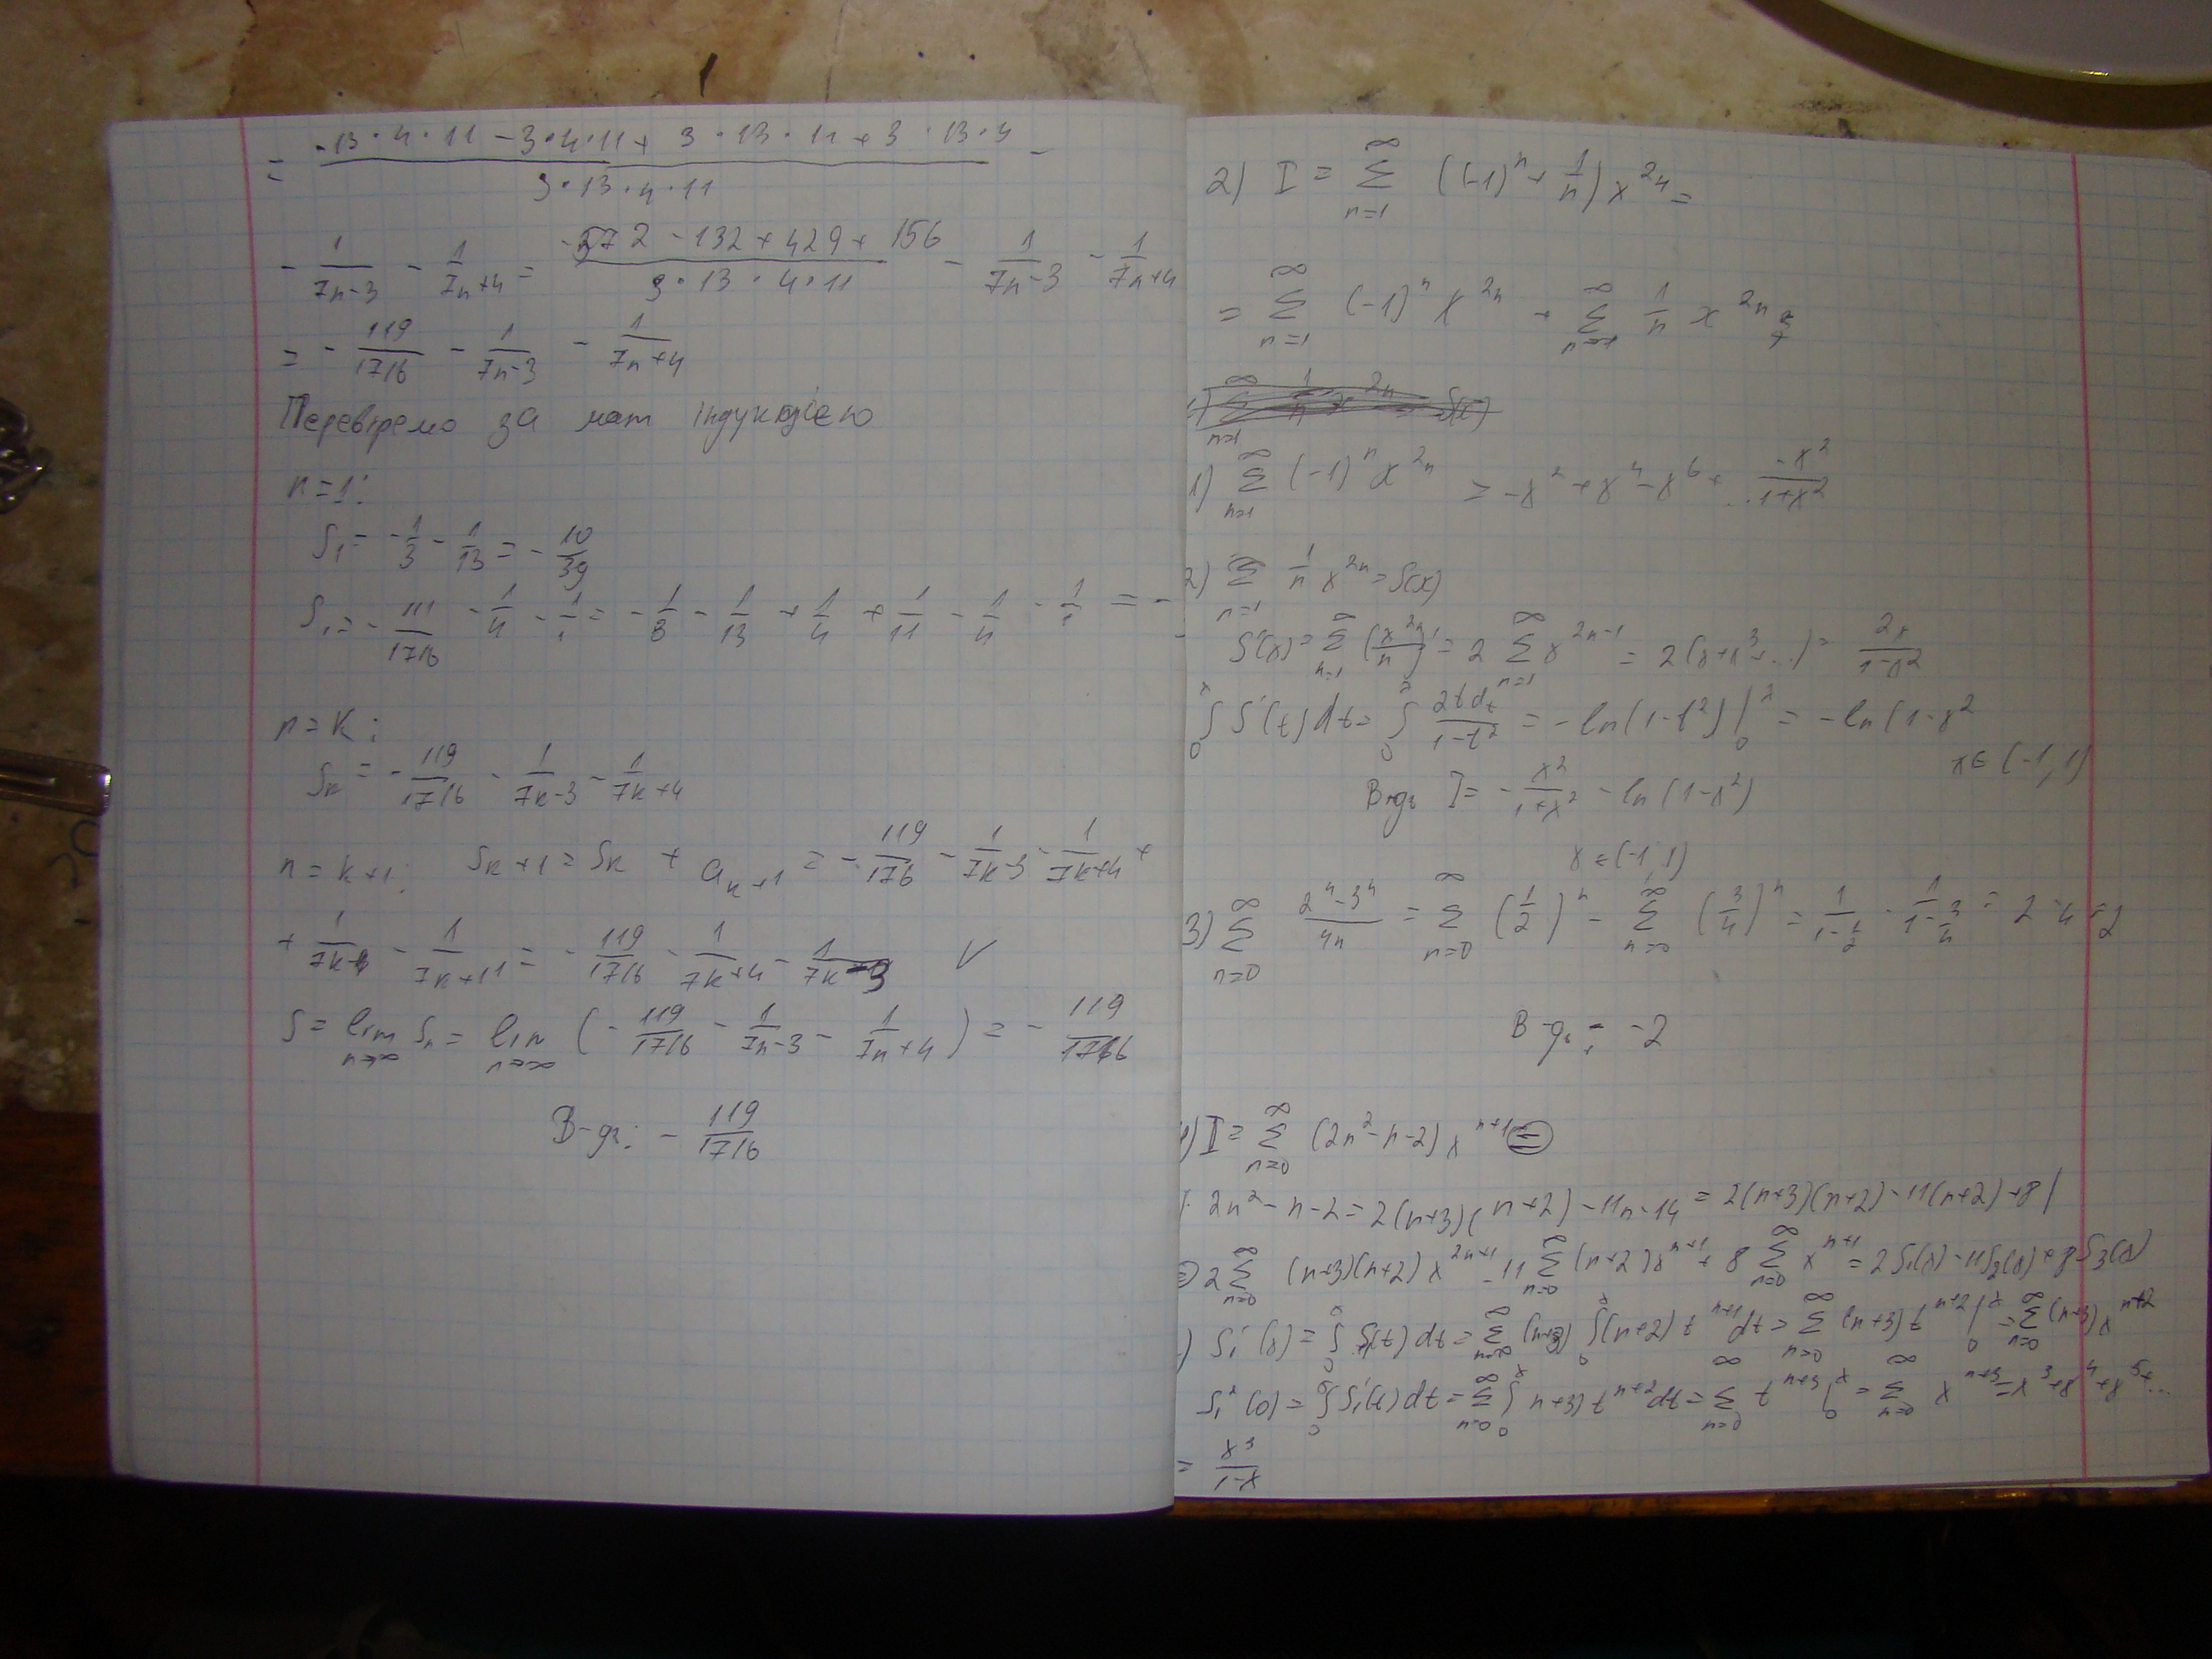 = (-13·4·11 - 3·4·11 + 3·13·11 + 3·13·4)/(3·13·4·11) -
- 1/(7n-3) - 1/(7n+4) = (-572 - 132 + 429 + 156)/(3·13·4·11) - 1/(7n-3) - 1/(7n+4)
= - 119/1716 - 1/(7n-3) - 1/(7n+4)
Перевіремо за мат індукцією
n=1:
S₁ = -1/3 - 1/13 = - 10/39
S₁ = - 111/1716 - 1/4 - 1/1 = - 1/3 - 1/13 + 1/4 + 1/11 - 1/4 - 1/1 = -
n=k:
Sk = - 119/1716 - 1/(7k-3) - 1/(7k+4)
n=k+1: Sk+1 = Sk + ak+1 = - 119/1716 - 1/(7k-3) - 1/(7k+4) +
- 1/(7k+11) = - 119/1716 - 1/(7k+4) V
S = lim n→∞ Sn = lim n→∞ (- 119/1716 - 1/(7n-3) - 1/(7n+4)) = - 119/1716
В-дь: - 119/1716
2) I = ∑ n=1 ∞ ((-1)ⁿ + 1/n) x²ⁿ =
= ∑ n=1 ∞ (-1)ⁿ x²ⁿ + ∑ n=1 ∞ 1/n x²ⁿ
1) ∑ n=1 ∞ (-1)ⁿ x²ⁿ = -x² + x⁴ - x⁶ + ... -x²/(1+x²)
2) ∑ n=1 ∞ 1/n x²ⁿ = S(x)
S'(x) = ∑ n=1 ∞ (x²ⁿ/n)' = 2 ∑ n=1 ∞ x²ⁿ⁻¹ = 2(x+x³+...) = 2x/(1-x²)
∫₀ˣ S'(t)dt = ∫₀ˣ 2tdt/(1-t²) = -ln(1-t²)|₀ˣ = -ln(1-x²
x∈(-1,1)
В-дь I = - x²/(1+x²) - ln(1-x²)
x=(-1,1)
3) ∑ n=0 ∞ (2ⁿ-3ⁿ)/4n = ∑ n=0 ∞ (1/2)ⁿ - ∑ n=0 ∞ (3/4)ⁿ = 1/(1-1/2) - 1/(1-3/4) = 2-4=2
В-дь: -2
I = ∑ n=0 ∞ (2n²-n-2)xⁿ⁺¹ =
2n²-n-2 = 2(n+3)(n+2)-11n-14 = 2(n+3)(n+2)-11(n+2)+8|
= 2∑ n=0 ∞ (n+3)(n+2)x²ⁿ⁺¹ - 11∑ n=0 ∞ (n+2)xⁿ⁺¹ + 8∑ n=0 ∞ xⁿ⁺¹ = 2S₁(x)-11S₂(x)+8S₃(x)
) S₁'(x) = ∫₀ˣ S₁(t)dt = ∑ n=0 ∞ (n+3) ∫₀ˣ (n+2)tⁿ⁺¹dt = ∑ n=0 ∞ (n+3)tⁿ⁺²|₀ˣ = ∑ n=0 ∞ (n+3)xⁿ⁺²
S₁²(0) = ∫₀ˣ S₁'(t)dt = ∑ n=0 ∞ ∫₀ˣ n+3)tⁿ⁺²dt = ∑ n=0 ∞ tⁿ⁺³|₀ˣ = ∑ n=0 ∞ xⁿ⁺³ = x³+x⁴+x⁵+...
= x³/(1-x)